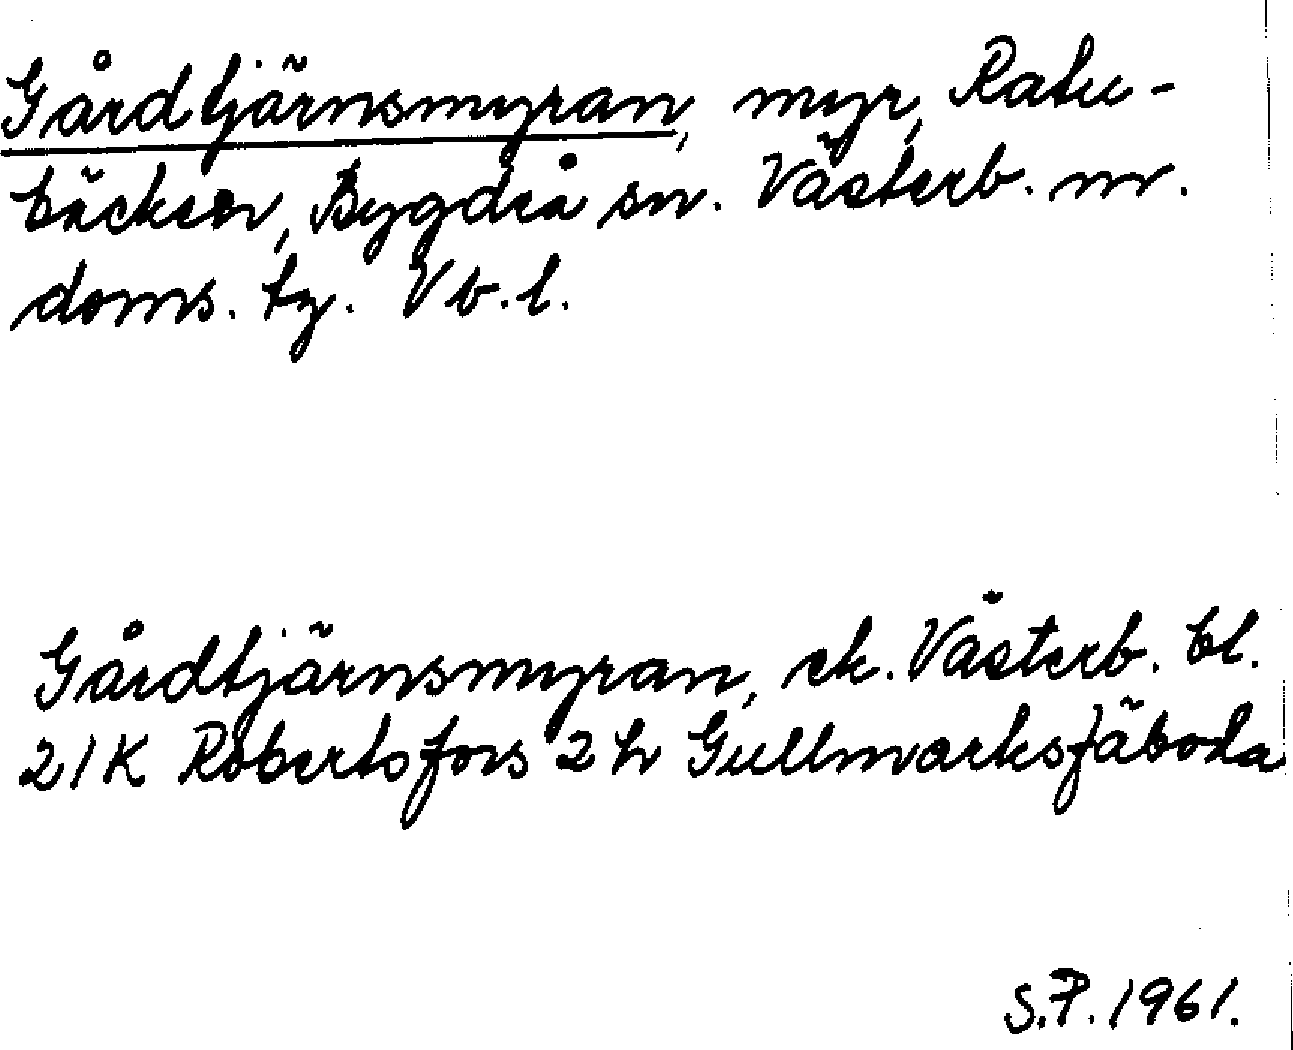 Gårdtjärnsmyran, myr, Ratu-
bäcksen, Bygdeå sn. Västerb. nr.
doms. tg. Vb. l.
Gårdtjärnsmyran, ek. Västerb. bl.
21K Robertsfors 2 h Gullmarksfäboda
S.P. 1961.